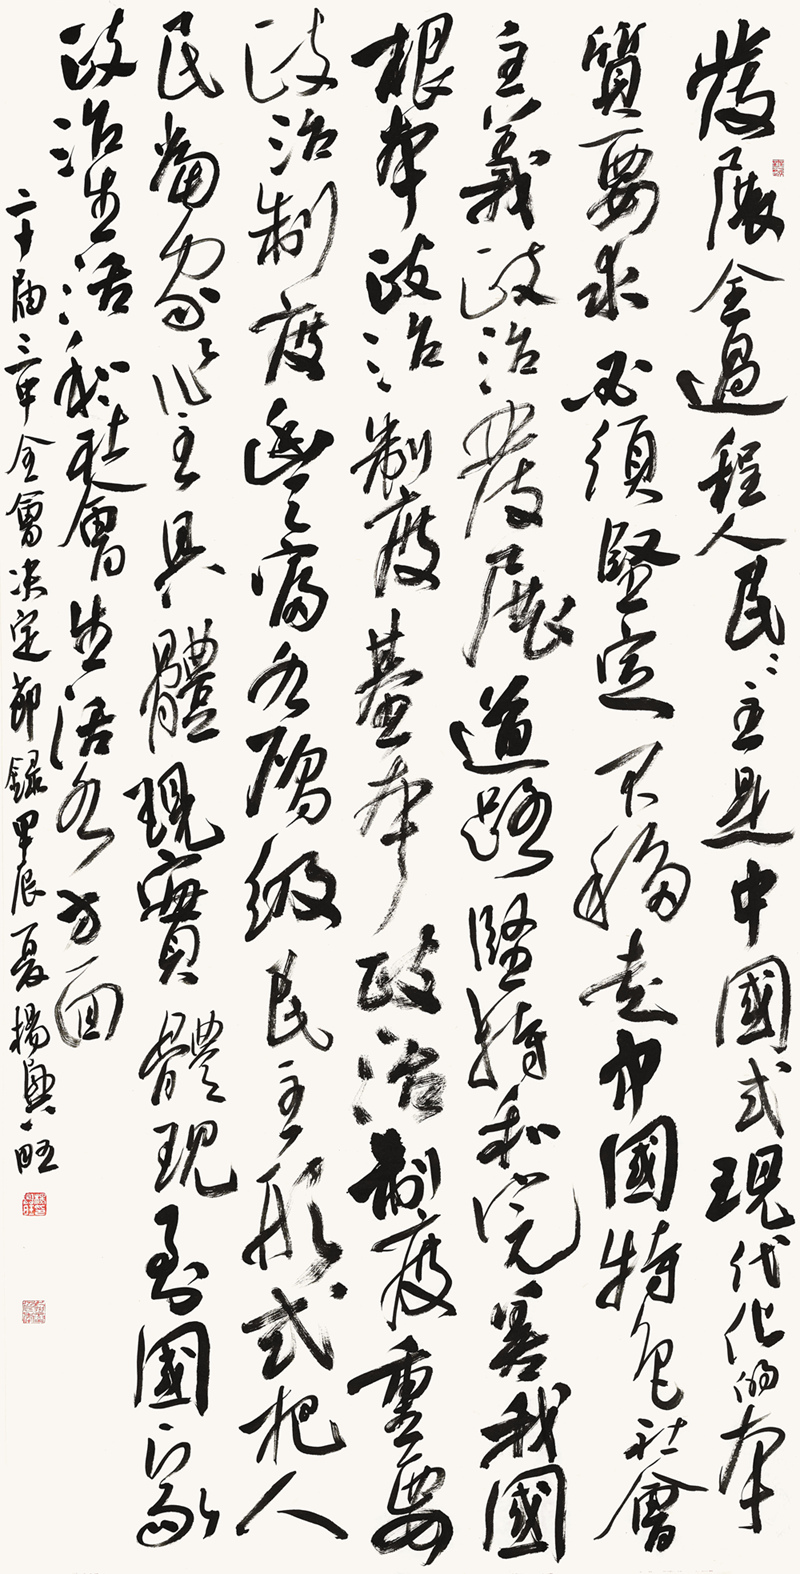 發展全過程人民〻主是中國式現代化的本
質要求必須堅定不移走中國特色社會
主義政治發展道路堅持和完善我國
根本政治制度基本政治制度重要
政治制度豐富各層級民主形式把人
民當家作主具體現實體現到國家
政治生活和社會生活各方面
二十屆三中全會決定節錄甲辰夏楊興旺